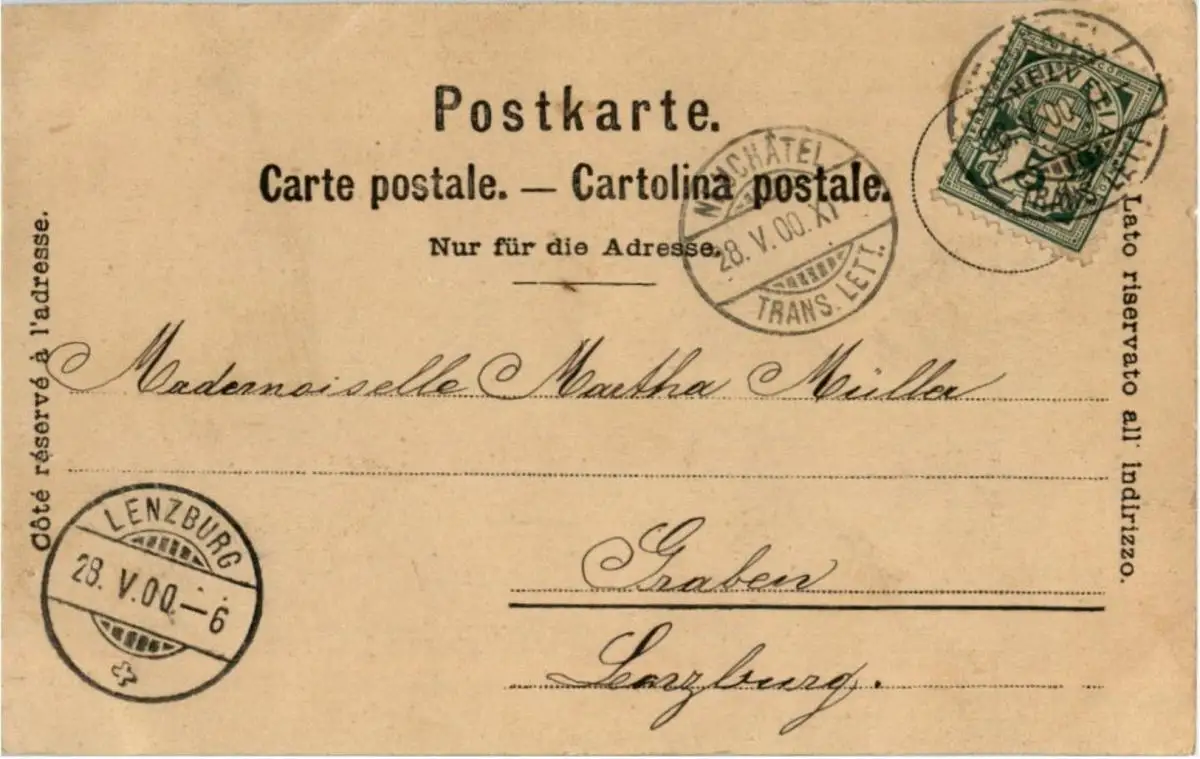 Postkarte.
Carte postale. — Cartolina postale.
Nur für die Adresse.
Côté réservé à l'adresse.
Lato riservato all' indirizzo.
HELVETIA
5
V.00
TRANS
NEUCHÂTEL
28. V. 00. XI
TRANS. LETT.
Mademoiselle Martha Müller
Graben
Lenzburg.
LENZBURG
28. V. 00. — 6